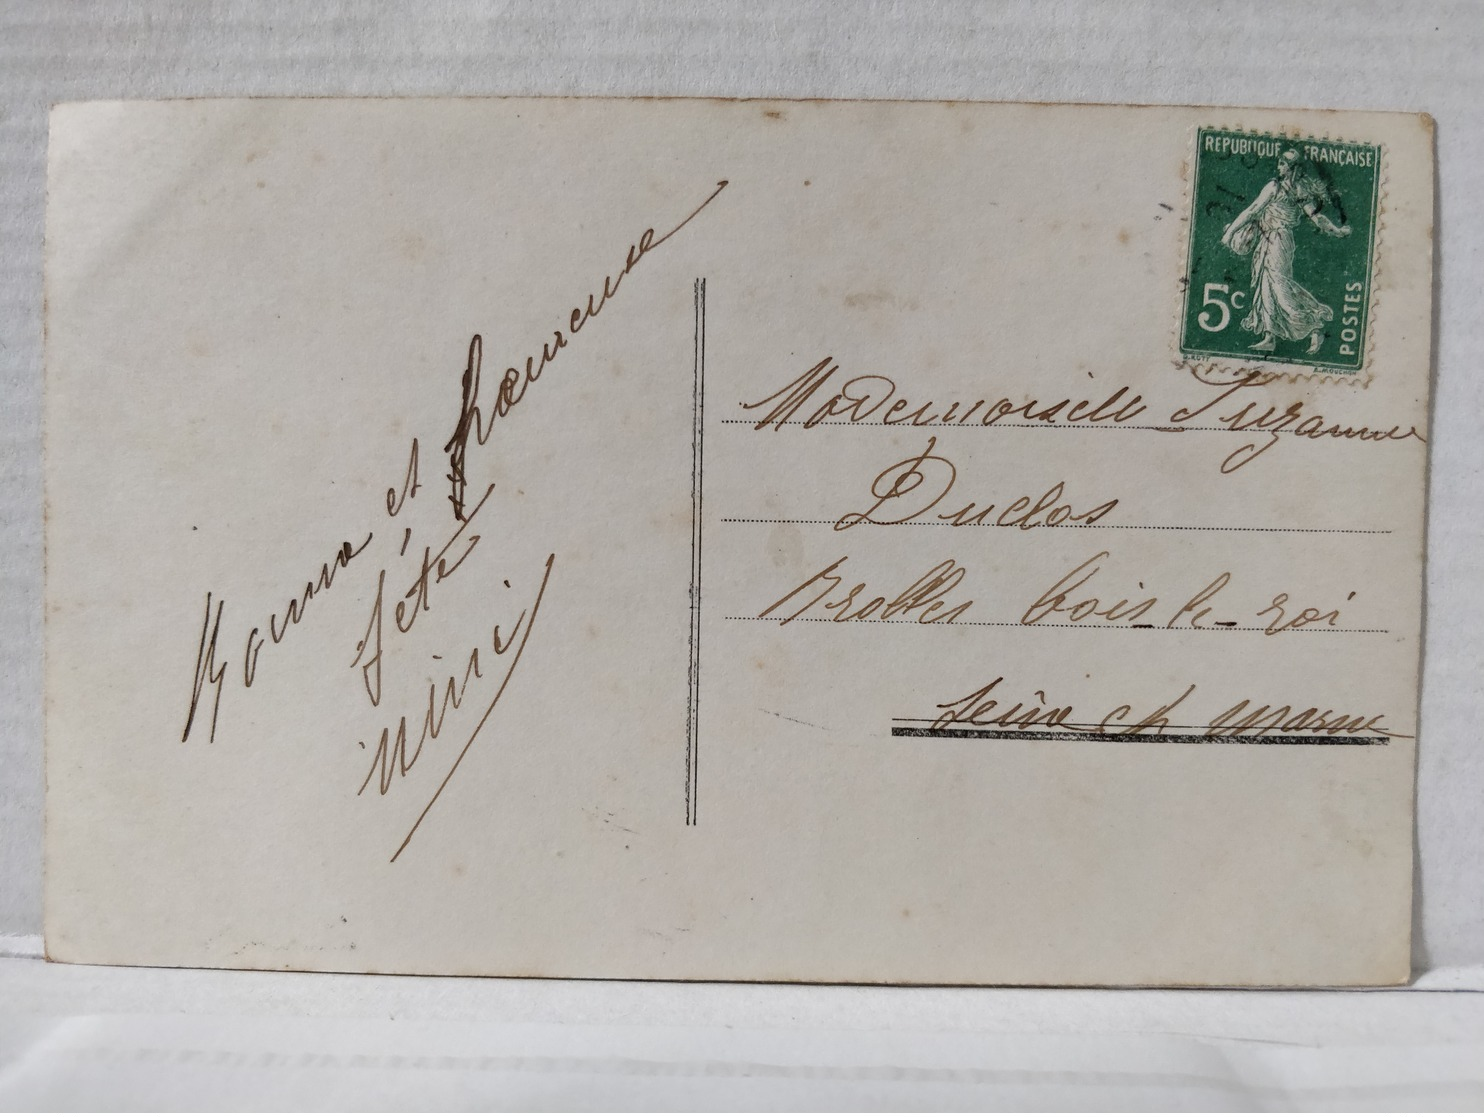 Bonne et heureuse
fête
Nini
REPUBLIQUE FRANÇAISE
5c
POSTES
O.ROTY
E.MOUCHON
Mademoiselle Suzanne
Duclos
Brolles bois-le-roi
Seine et Marne